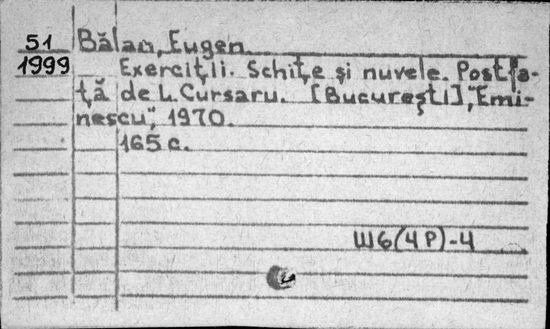 51 Bălan, Eugen
1999 Exerciţii. Schiţe şi nuvele. Postfa-
ţă de L. Cursaru. [Bucureşti], "Emi-
nescu", 1970.
165 c.
Ш6(4Р)-4